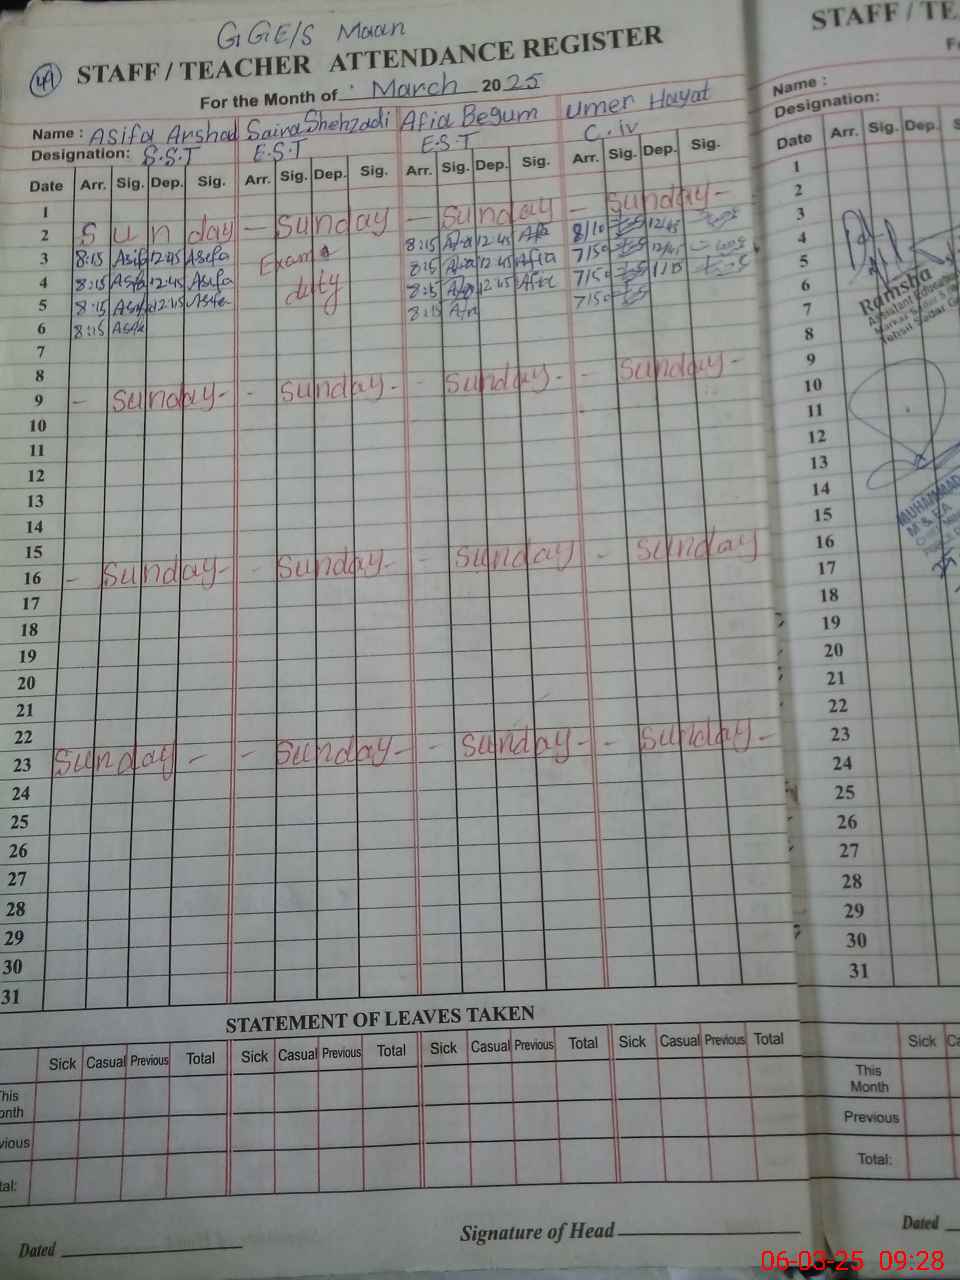 GGE/S Maan
4A STAFF / TEACHER ATTENDANCE REGISTER
For the Month of March 2025
Name : Asifa Arshad Saira Shehzadi Afia Begum Umer Hayat
Designation: S.S.T E.S.T E.S.T C.iv
Date Arr. Sig. Dep. Sig. Arr. Sig. Dep. Sig. Arr. Sig. Dep. Sig. Arr. Sig. Dep. Sig.
1
2 Sunday - Sunday - Sunday - Sunday -
3 8:15 Asifa 12:45 Asifa Exam 8:15 Afia 12:45 Afia 8/10 12/45
4 8:15 Asifa 12:45 Asifa duty 8:15 Afia 12:45 Afia 7/50 12/45
5 8:15 Asifa 12:45 Asifa 8:15 Afia 12:45 Afia 7/50 1/15
6 8:15 Asifa 8:15 Afia 7/50
7
8
9 - Sunday - - Sunday - - Sunday - - Sunday -
10
11
12
13
14
15
16 - Sunday - - Sunday - - Sunday - Sunday
17
18
19
20
21
22
23 Sunday - - Sunday - - Sunday - - Sunday -
24
25
26
27
28
29
30
31
STATEMENT OF LEAVES TAKEN
Sick Casual Previous Total Sick Casual Previous Total Sick Casual Previous Total Sick Casual Previous Total
This
onth
vious
tal:
Dated
Signature of Head
STAFF / TE
F
Name :
Designation:
Date Arr. Sig. Dep. S
1
2
3
4
5
6
7
8
9
10
11
12
13
14
15
16
17
18
19
20
21
22
23
24
25
26
27
28
29
30
31
Ramsha
Assistant Educatio
Tehsil Sadar
MUHAMMAD
Sick Ca
This
Month
Previous
Total:
Dated
06-03-25 09:28